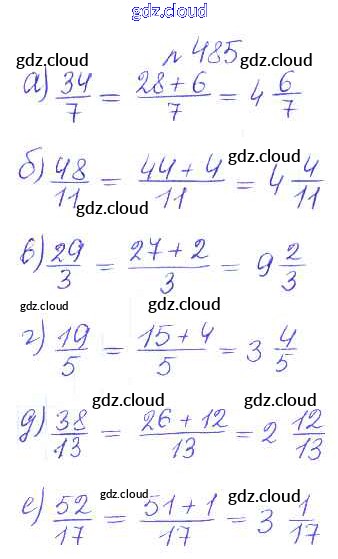 gdz.cloud
№ 485
gdz.cloud gdz.cloud
а) 34/7 = 28+6/7 = 4 6/7
gdz.cloud
б) 48/11 = 44+4/11 = 4 4/11
gdz.cloud
gdz.cloud
в) 29/3 = 27+2/3 = 9 2/3
gdz.cloud gdz.cloud
г) 19/5 = 15+4/5 = 3 4/5
gdz.cloud gdz.cloud
д) 38/13 = 26+12/13 = 2 12/13
gdz.cloud gdz.cloud
е) 52/17 = 51+1/17 = 3 1/17